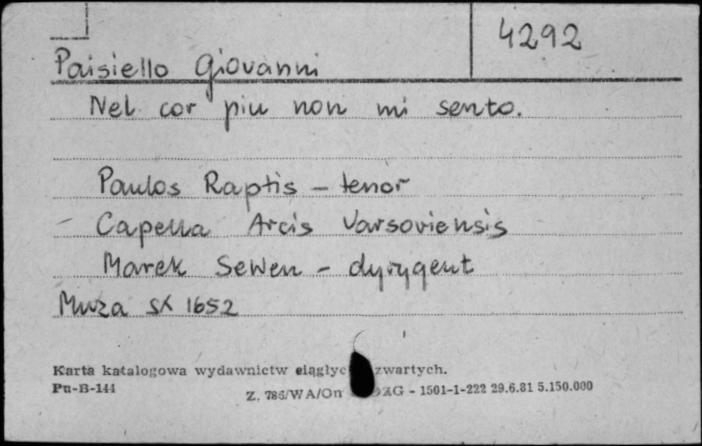 4292
Paisiello Giovanni
Nel cor piu non mi sento.
Paulos Raptis - tenor
Capella Arcis Varsoviensis
Marek Sewen - dyrygent
Muza SX 1652
Karta katalogowa wydawnictw zwartych.
Pu-B-144
Z. 786/WA/On - 1501-1-222 29.6.81 5.150.000